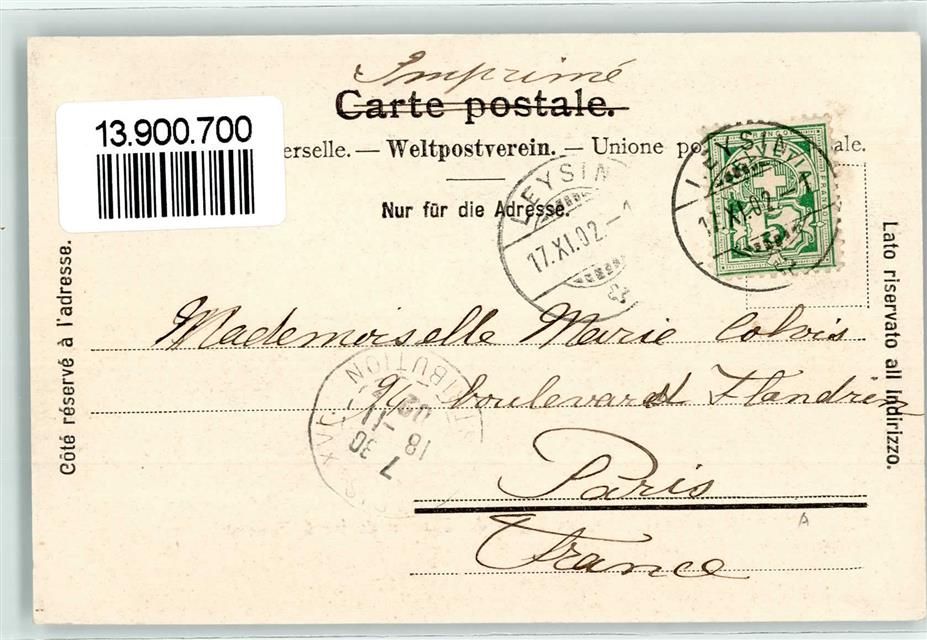 Imprimé
Carte postale.
13.900.700
erselle. — Weltpostverein. — Unione po ale.
Nur für die Adresse.
LEYSIN
17.XI.02.-1
LEYSIN
17.XI.02.-
HELVETIA
Côté réservé à l'adresse.
Lato riservato all indirizzo.
Mademoiselle Marie Colvis
boulevard Flandrin
Paris
France
DISTRIBUTION
7 30
18 -11
02
XVI
A